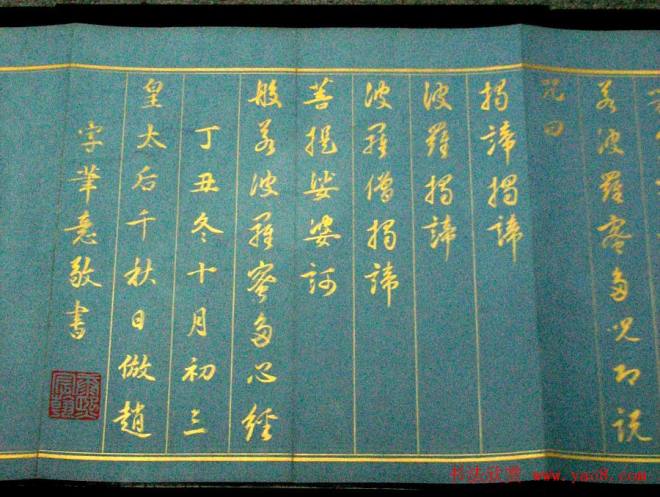 若波羅蜜多咒即説
咒曰
揭諦揭諦
波羅揭諦
波羅僧揭諦
菩提娑婆訶
般若波羅蜜多心經
丁丑冬十月初三
皇太后千秋日倣趙
字筆意敬書
书法欣赏 www.yac8.com